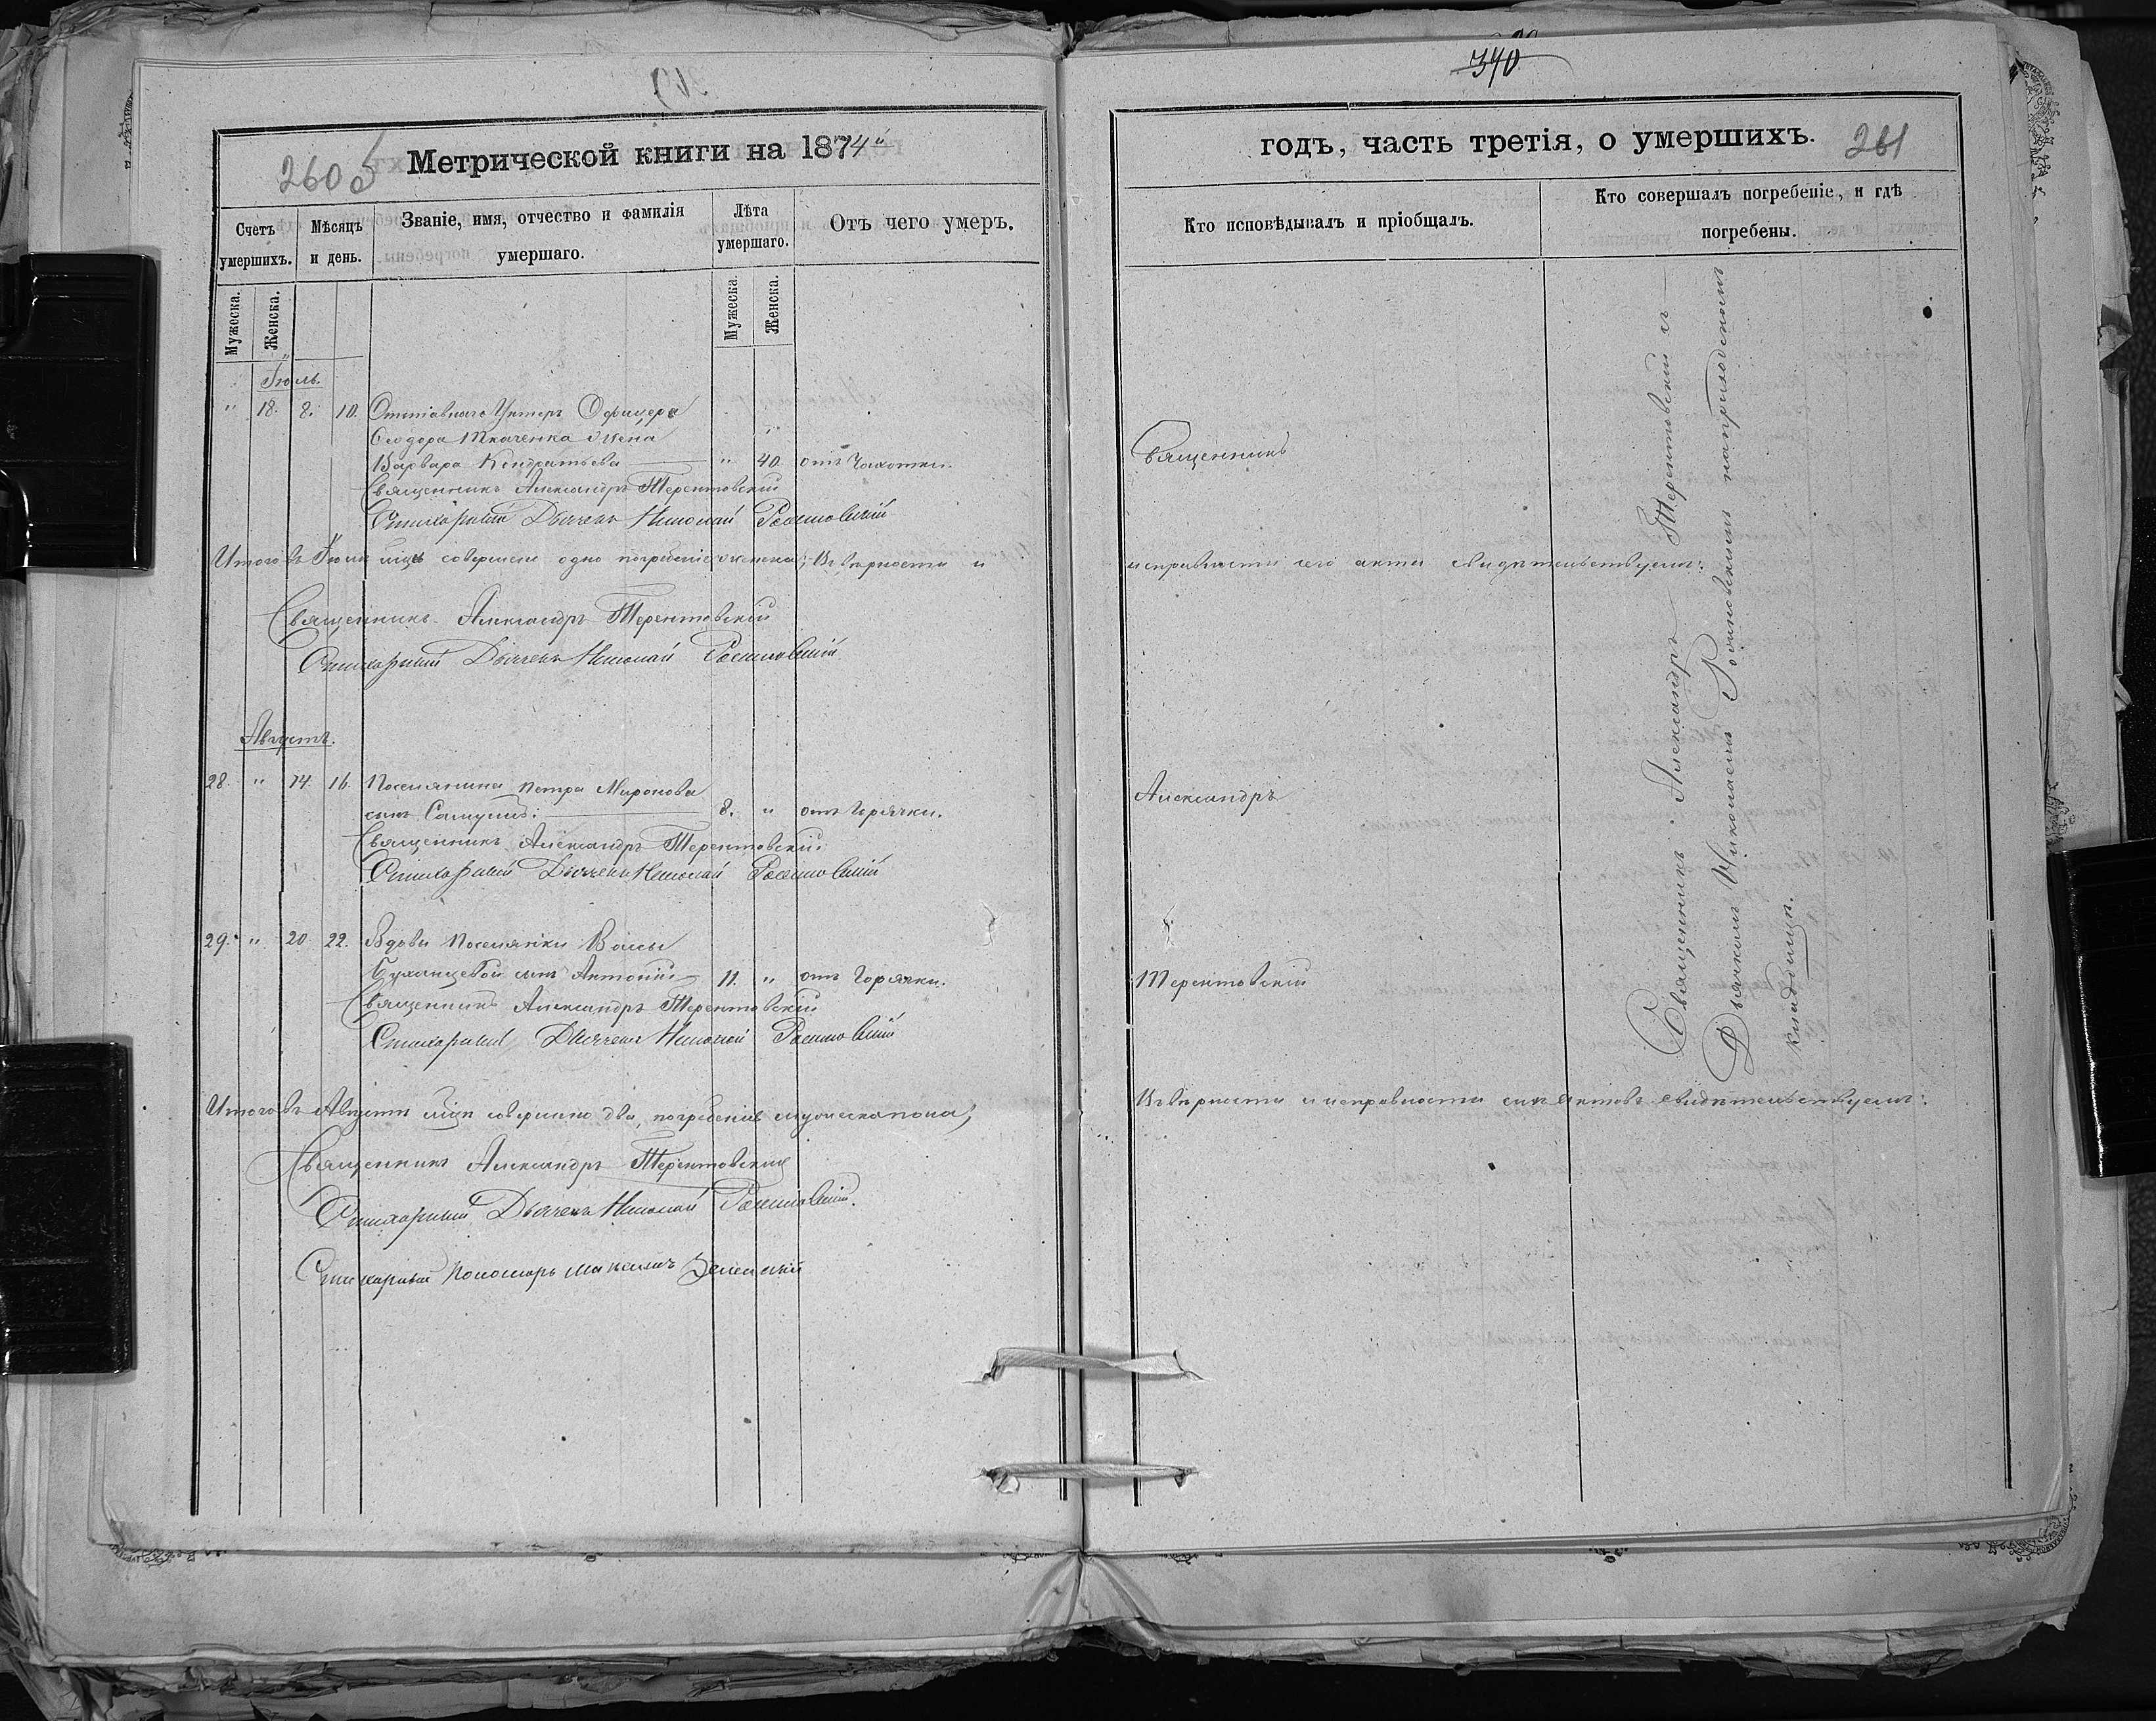 260 б
Метрической книги на 1874й
Счетъ умершихъ.
Мѣсяцъ и день.
Званіе, имя, отчество и фамилія умершаго.
Лѣта умершаго.
Отъ чего умеръ.
Мужеска.
Женска.
Мужеска.
Женска.
Іюль.
" 18. 8. 10. Отставнаго Унтеръ Офицера
Ѳеодора Ткаченка жена
Варвара Кондратьева " 40 отъ Чахотки.
Священникъ Александръ Терентовскій
Стихарный Дьячекъ Николай
Итого въ Іюлѣ м͠цѣ совершено одно погребеніе женска; Вѣрности и
Священникъ Александръ Терентовскій
Стихарный Дьячекъ Николай
Августъ.
28. " 14. 16. Поселянина Петра Миронова
сынъ Самуилъ. 8. " отъ Горячки.
Священникъ Александръ Терентовскій
Стихарный Дьячекъ Николай
29. " 20. 22. Вдовы Поселянки
сынъ Антоній 11. " отъ Горячки.
Священникъ Александръ Терентовскій
Стихарный Дьячекъ Николай
Итого въ Августѣ м͠цѣ совершено два погребенія мужеска пола;
Священникъ Александръ Терентовскій
Стихарный Дьячекъ Николай
Стихарный Пономарь
340
годъ, часть третія, о умершихъ.
261
Кто исповѣдывалъ и пріобщалъ.
Кто совершалъ погребеніе, и гдѣ погребены.
Священникъ
исправности сего акта свидѣтельствуемъ:
Александръ
Терентовскій
Вѣрности и исправности сихъ актовъ свидѣтельствуемъ:
Священникъ Александръ Терентовскій съ
Дьячкомъ Николаемъ на приходскомъ
кладбищѣ.